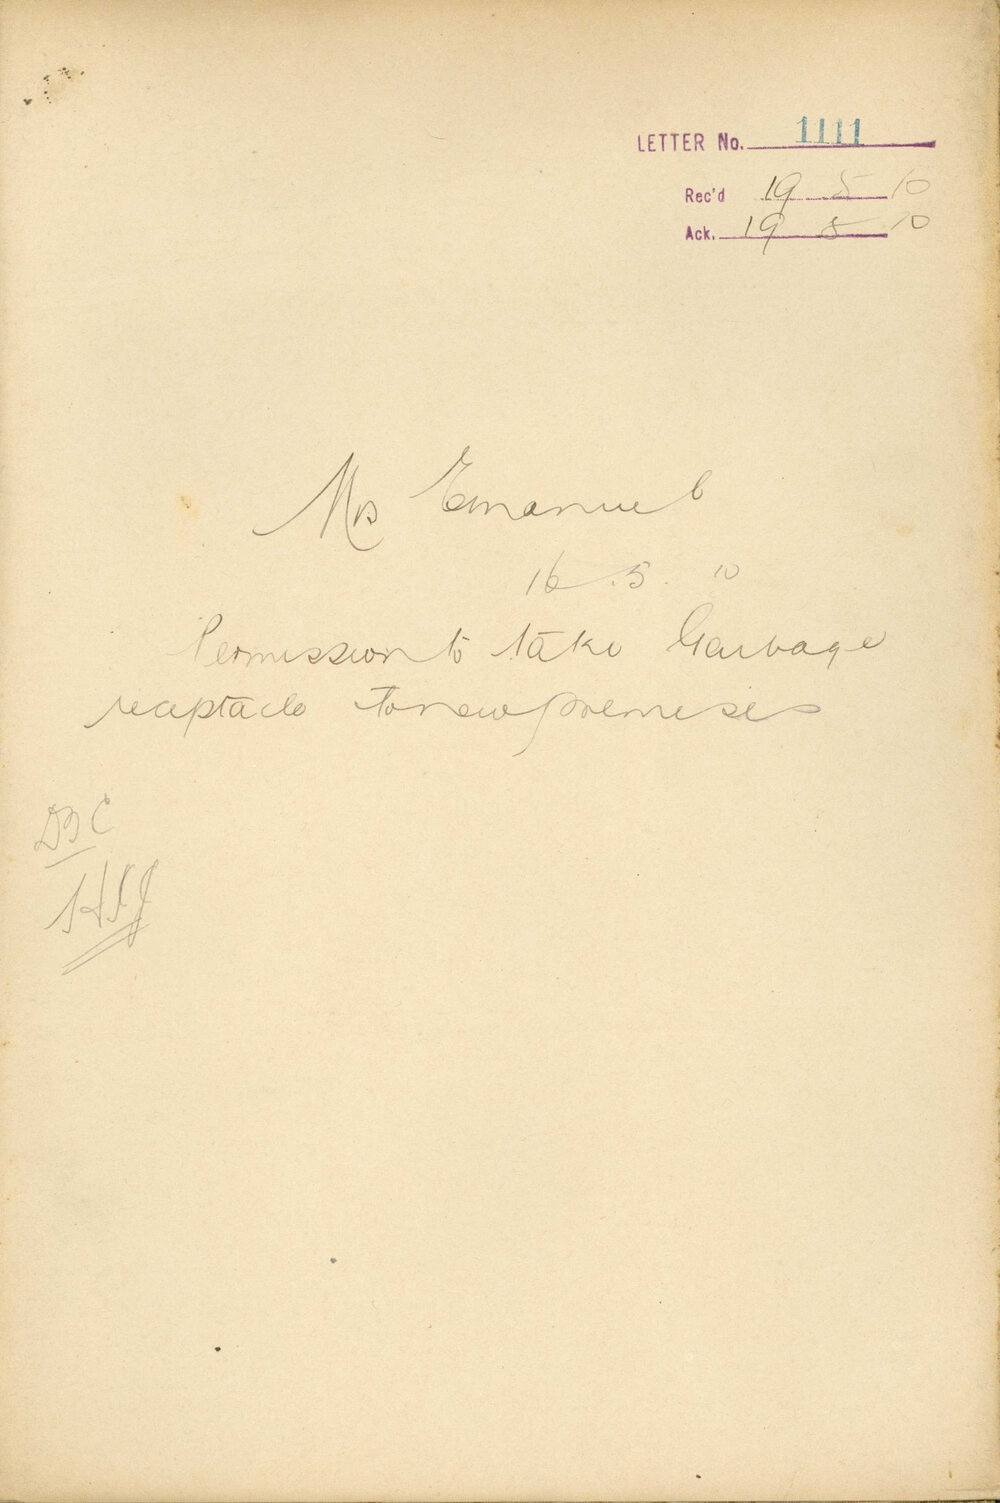 LETTER No. 1111
Rec'd 19 5 10
Ack. 19 5 10
Mrs Emanuel
16.5.10
Permission to take Garbage
reaptacle to new premises
DBC